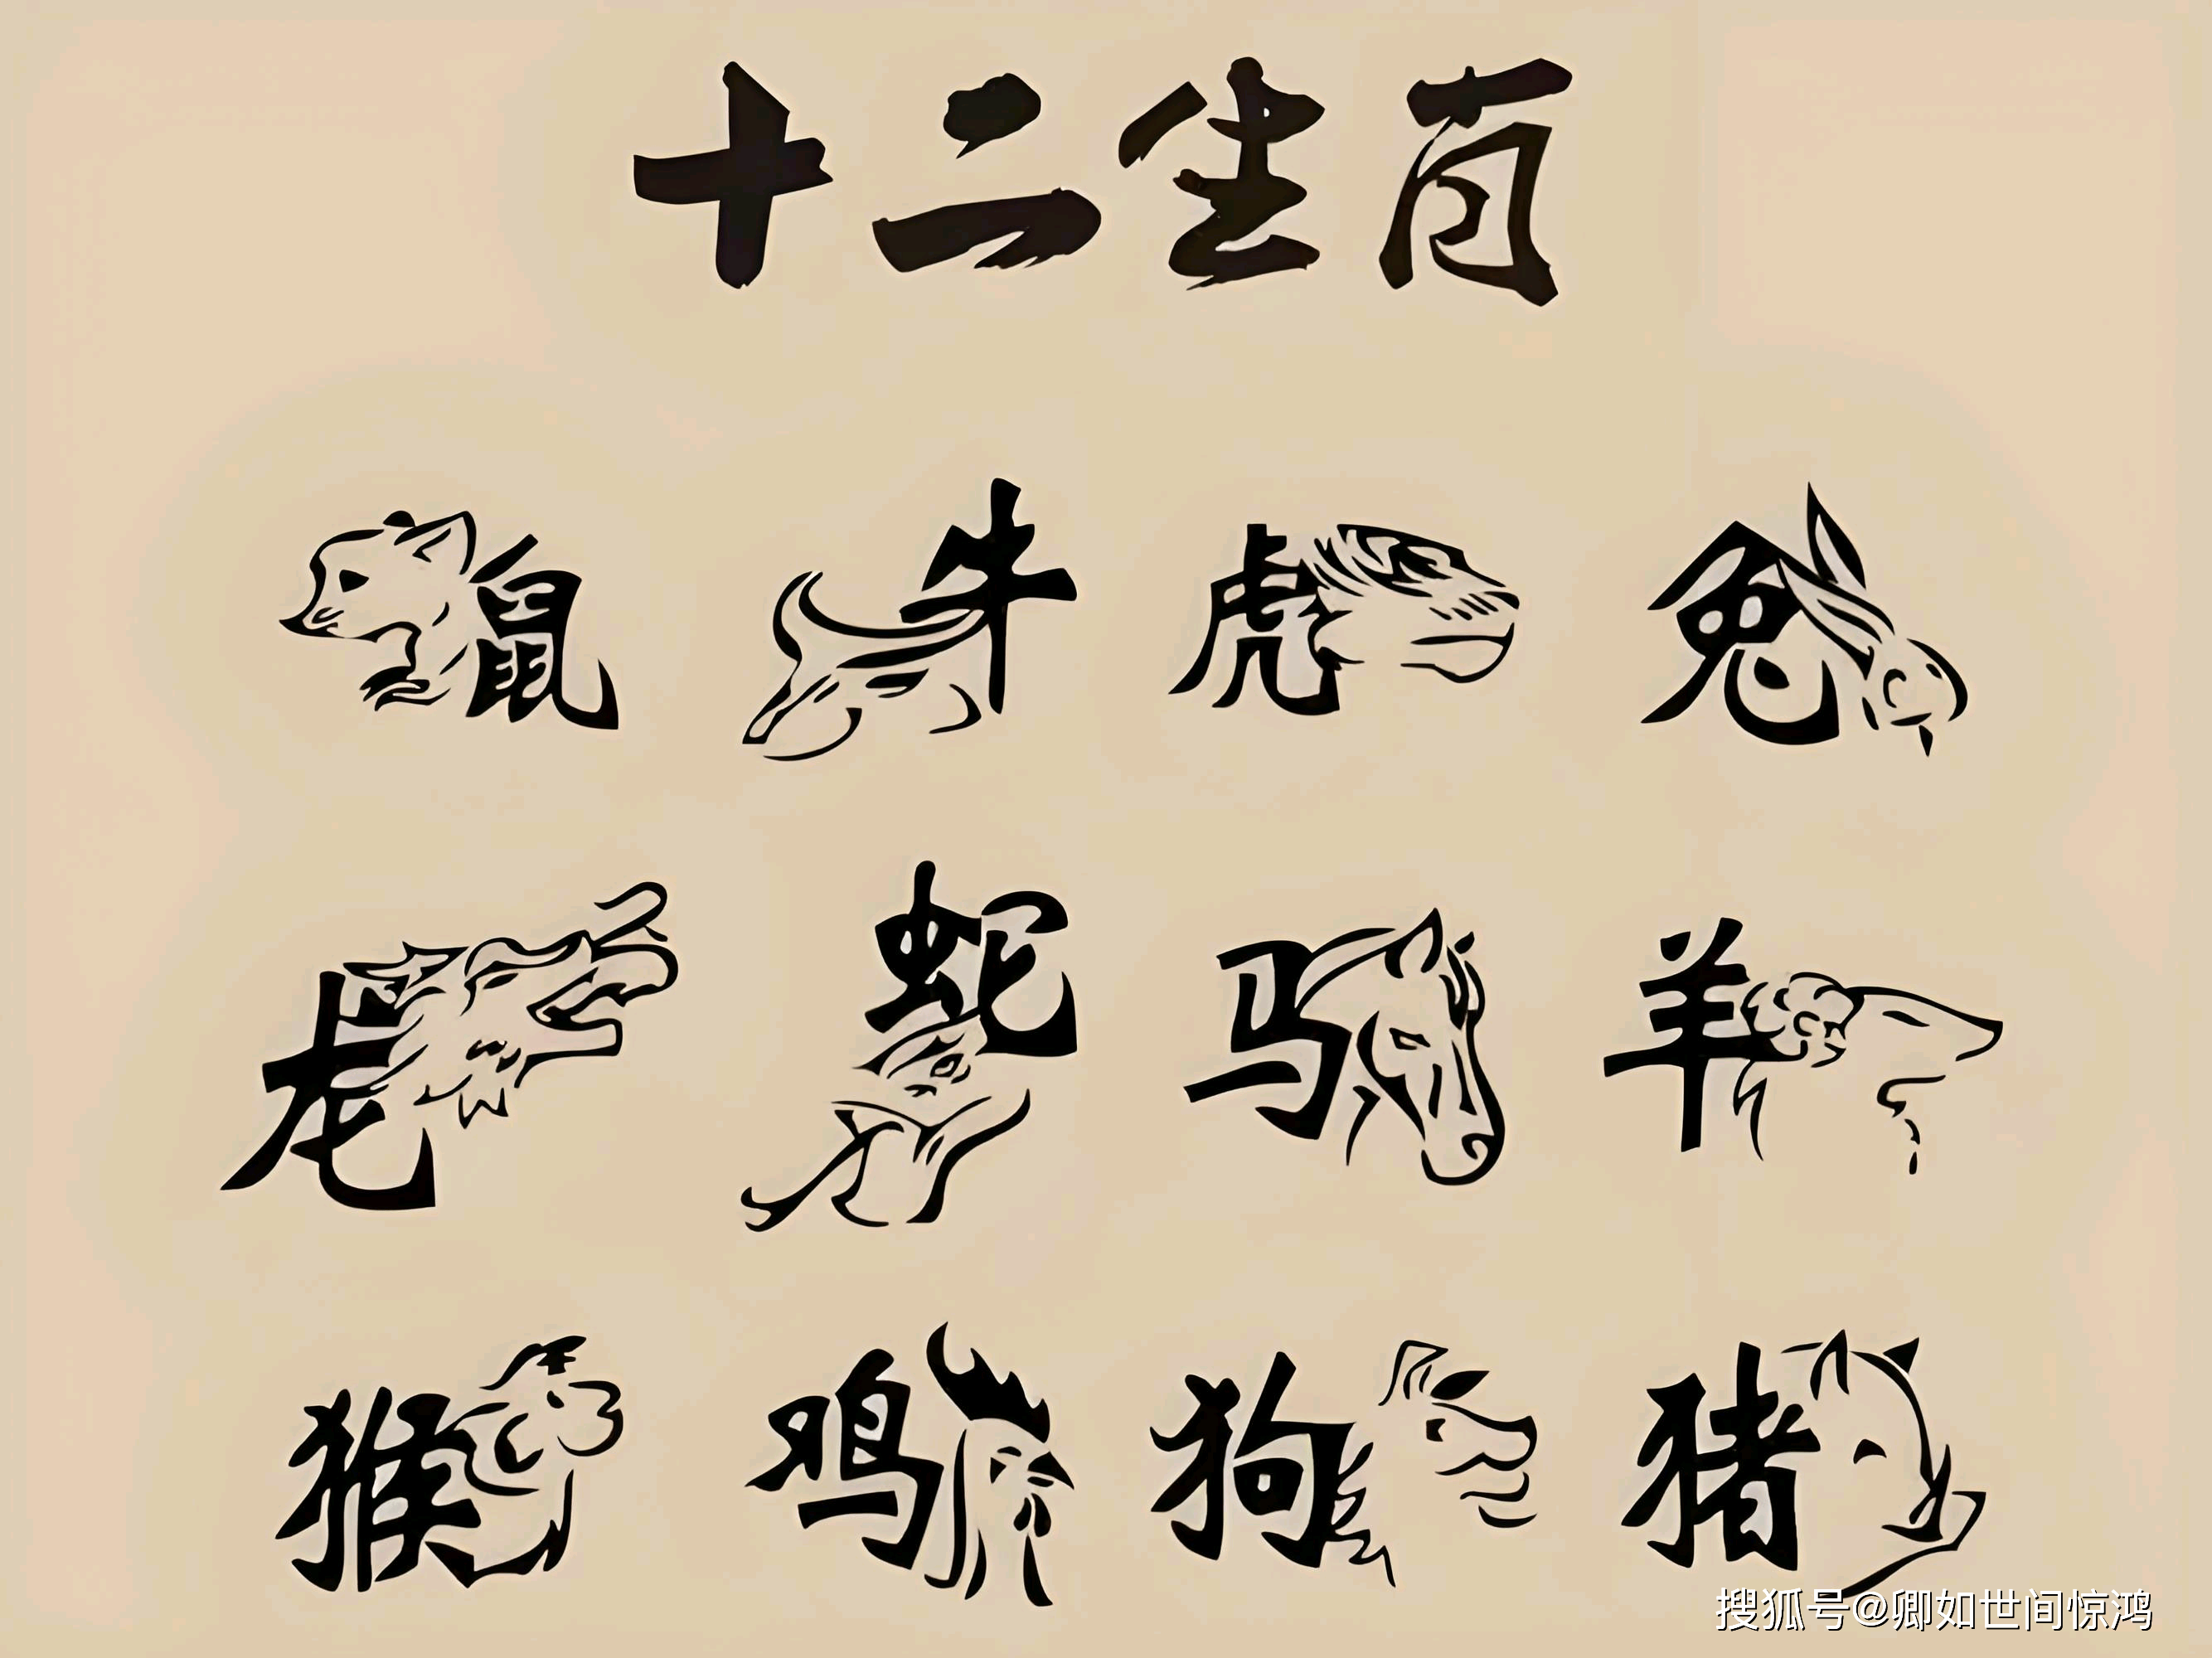 十二生肖
鼠 牛 虎 兔
龙 蛇 马 羊
猴 鸡 狗 猪
搜狐号@卿如世间惊鸿